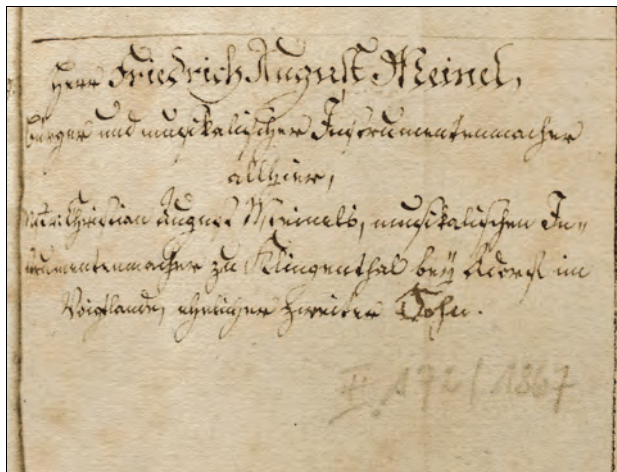 Herr Friedrich August Meinel,
Bürger und musikalischer Instrumentenmacher
allhier,
Christian August Meinels, musikalischen In-
strumentenmacher zu Klingenthal bey Adorf im
Voigtlande, ehelicher zweiter Sohn.
II 172/1867